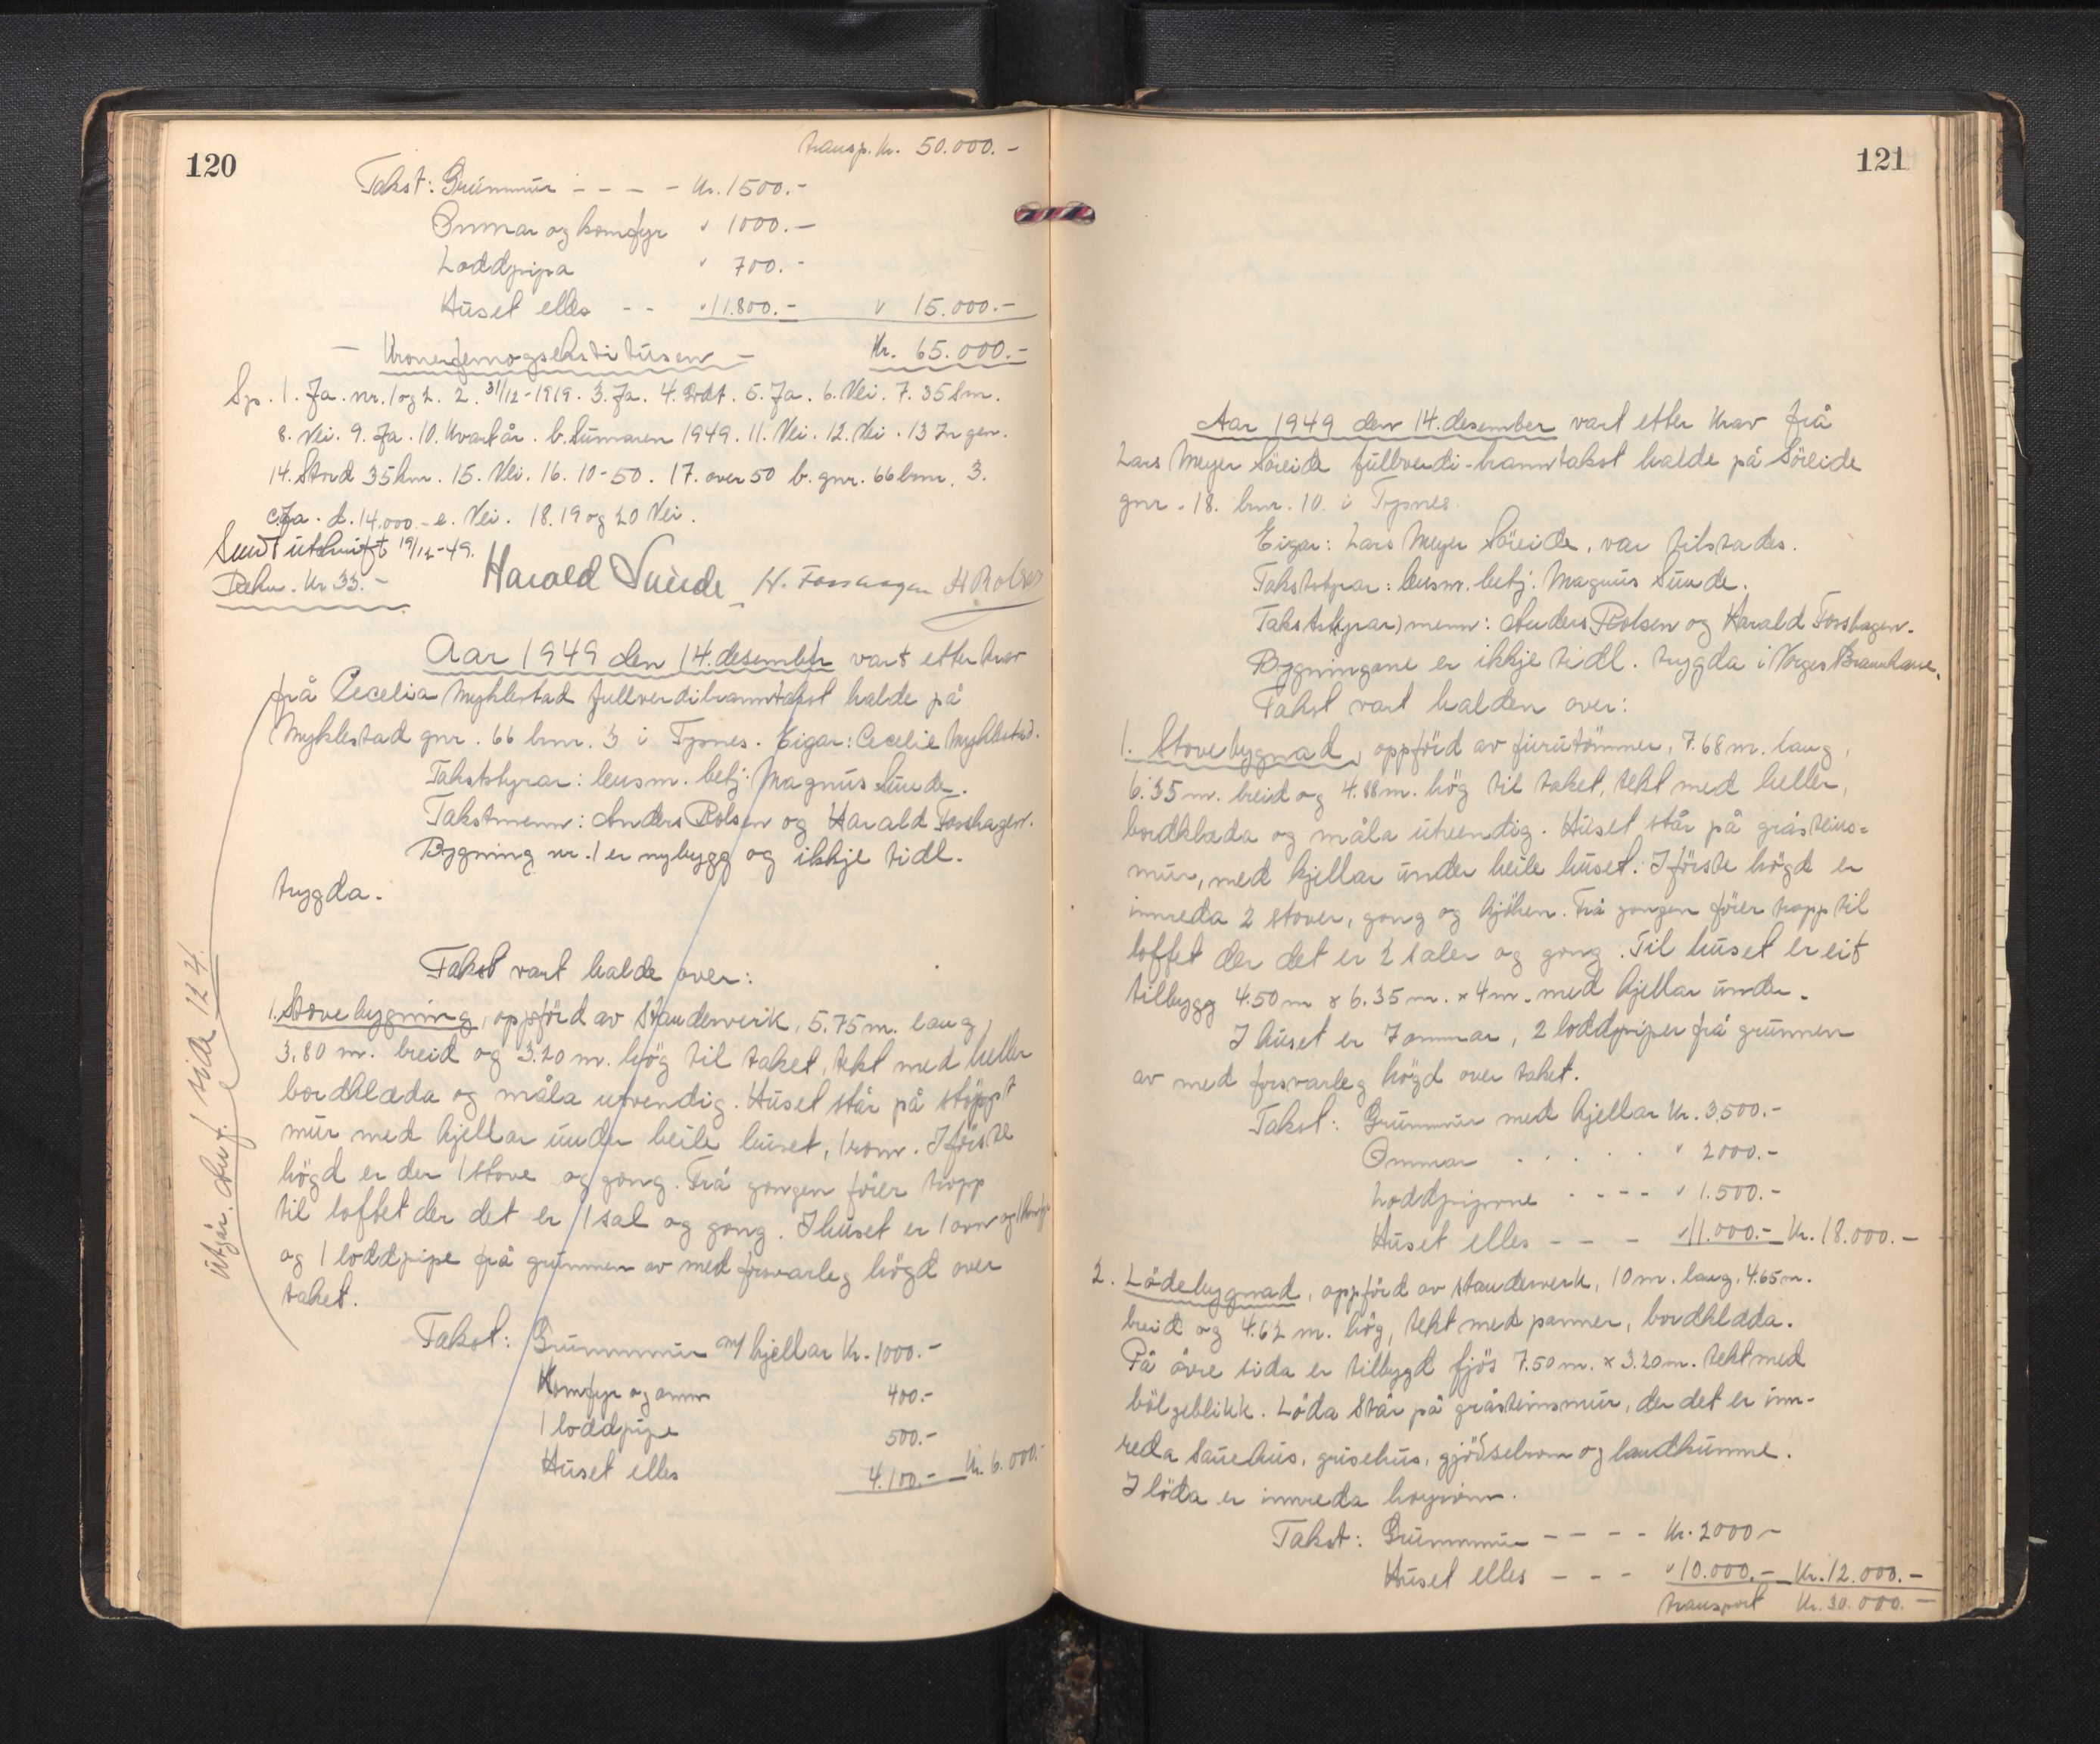 120
transp. kr. 50.000.-
Takst: Grunnmur - - - - kr. 1500.-
Omnar og komfyr " 1000.-
Loddpipa " 700.-
Huset elles - - " 11.800.- " 15.000.-
- Kronerfemogsekstitusen - Kr. 65.000.-
Sp. 1. Ja. nr. 1 og 2. 2. 31/12-1919. 3. Ja. 4. Godt. 5. Ja. 6. Nei. 7. 35 km.
8. Nei. 9. Ja. 10. Kvart år. b. Sumaren 1949. 11. Nei. 12. Nei. 13 Ingen.
14. Stord 35 km. 15. Nei. 16. 10-50. 17. over 50 b. gnr. 66 bnr. 3.
c. Ja. d. 14.000.- e. Nei. 18. 19 og 20 Nei.
Sendt utskrift 19/12-49.
Rekn. Kr 33.-
Harald Sunde H. Fosshagen A Rolsen
Aar 1949 den 14. desember vart etter krav
frå Cecelia Myklestad fullverdibranntakst halde på
Myklestad gnr. 66 bnr. 3 i Tysnes. Eigar: Cecelie Myklestad.
Takststyrar: lensm. betj. Magnus Sunde.
Takstmenn: Anders Rolsen og Harald Fosshagen.
Bygning nr. 1 er nybygg og ikkje tidl.
trygda.
Takst vart halde over:
1. Stovebygning, oppförd av standerverk, 5.75 m. lang,
3.80 m. breid og 3.20 m. hög til taket, tekt med heller
bordklæda og måla utvendig. Huset står på stöypt
mur med kjellar under heile huset, 1 rom. I förste
högd er der 1 stove og gong. Frå gongen förer tropp
til loftet der det er 1 sal og gong. I huset er 1 omn og 1 komfyr
og 1 loddpipe frå grunnen av med forsvarleg högd over
taket.
Takst: Grunnmur m/ kjellar Kr. 1000.-
Komfyr og omn 400.-
1 loddpipe 500.-
Huset elles 4.100.- Kr. 6.000.-
Utgår. Anf. side 124.
121
Aar 1949 den 14. desember vart etter krav frå
Lars Meyer Söreide fullverdi-branntakst halde på Söreide
gnr. 18. bnr. 10. i Tysnes.
Eigar: Lars Meyer Söreide, var tilstades.
Takststyrar: lensm. betj. Magnus Sunde.
Takst(styrar)menn: Anders Rolsen og Harald Fosshagen.
Bygningane er ikkje tidl. trygda i Norges Brannkasse.
Takst vart halden over:
1. Stovebygnad, oppförd av furutömmer, 7.68 m. lang,
6.35 m. breid og 4.88 m. hög til taket, tekt med heller,
bordklæda og måla utvendig. Huset står på gråsteins=
mur, med kjellar under heile huset. I förste högd er
innreda 2 stover, gong og kjöken. Frå gongen förer tropp til
loftet der det er 2 saler og gong. Til huset er eit
tilbygg 4.50 m x 6.35 m. x 4 m. med kjellar under.
I huset er 7 omnar, 2 loddpiper frå grunnen
av med forsvarleg högd over taket.
Takst: Grunnmur med kjellar Kr. 3.500.-
Omnar . . . . . " 2000.-
Loddpipene - - - - " 1.500.-
Huset elles - - - " 11.000.- Kr. 18.000.-
2. Lödebygnad, oppförd av standerverk, 10 m. lang, 4.65 m.
breid og 4.62 m. hög, tekt med panner, bordklæda.
På övre sida er tilbygd fjös 7.50 m. x 3.20 m. tekt med
bölgeblikk. Löda står på gråsteinsmur, der det er inn-
reda sauehus, grisehus, gjödselrom og landkumme.
I löda er innreda höyrom.
Takst: Grunnmur - - - - Kr. 2000-
Huset elles - - - " 10.000.- Kr. 12.000.-
transport Kr. 30.000.-